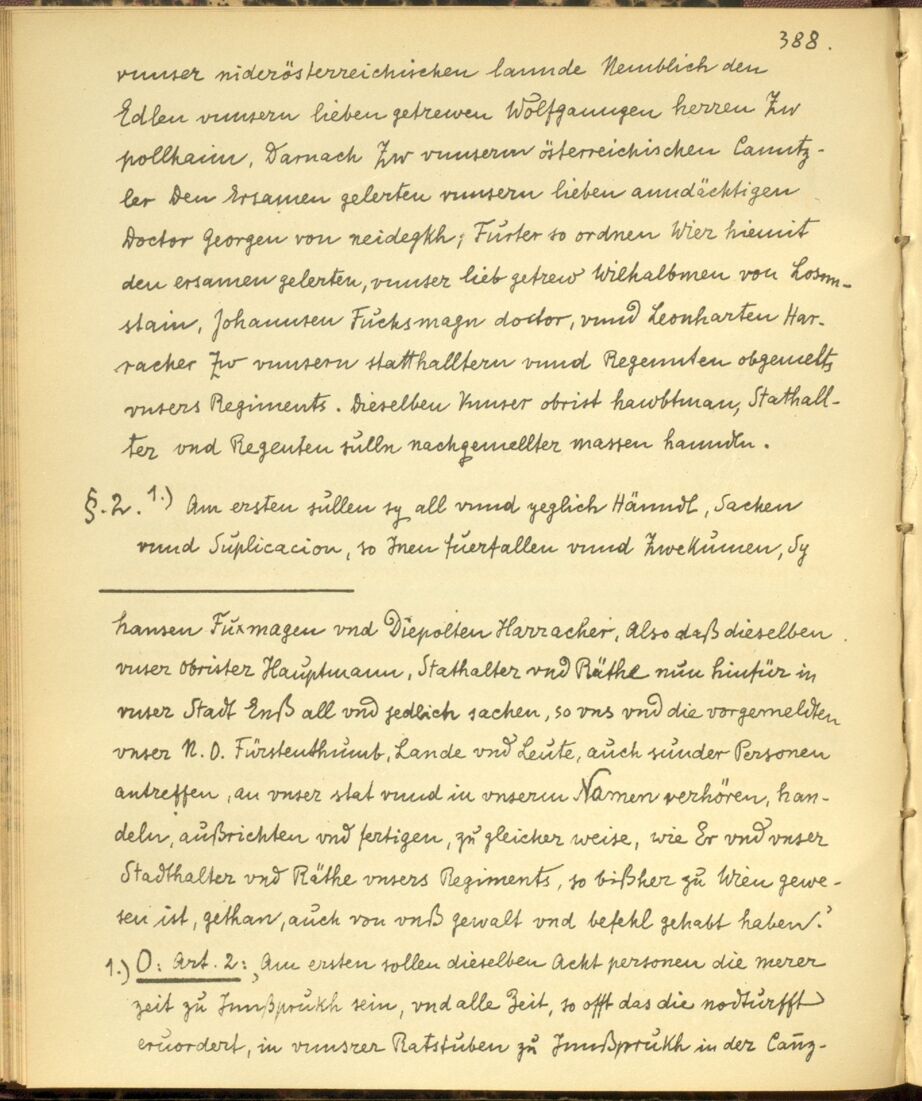 388.
vnnser niderösterreichischen lannde Nemblich den
Edlen vnnsern lieben getrewen Wolfganngen herren Zw
pollhaim, Darnach Zw vnnserm österreichischen Canntz-
ler Den Ersamen gelerten vnnsern lieben anndächtigen
Doctor Georgen von neidegkh; Furter so ordnen Wier hiemit
den ersamen gelerten, vnnser lieb getrew Wilhalbmen von Losnn-
stain, Johannsen Fuchsmagn doctor, vnnd Leonharten Har-
racher Zw vnnsern statthalltern vnnd Regennten obgemelts
vnsers Regiments. Dieselben Vnnser obrist hawbtman, Stathall-
ter vnd Regenten sulln nachgemellter massen hanndln.
§.2. 1.) Am ersten sullen sy all vnnd yeglich Hänndl, Sachen
vnnd Suplicacion, so Inen fuerfallen vnnd Zwekumen, Sy
hansen Fuxmagen vnd Diepolten Harracher, Also daß dieselben
vnser obrister Hauptmann, Stathalter vnd Räthe nun hinfür in
vnser Stadt Enß all vnd jedlich sachen, so vns vnd die vorgemeldten
vnser N. O. Fürstenthumb, Lande vnd Leute, auch sunder Personen
antreffen, an vnser stat vnnd in vnserm Namen verhören, han-
deln, außrichten vnd fertigen, zu gleicher weise, wie Er vnd vnser
Stadthalter vnd Räthe vnsers Regiments, so bißher zu Wien gewe-
sen ist, gethan, auch von vnß gewalt vnd befehl gehabt haben.'
1.) O: Art. 2: „Am ersten sollen dieselben Acht personen die merer
zeit zu Innßprukh sein, vnd alle Zeit, so offt das die nodturfft
eruordert, in vnnsrer Ratstuben zu Innßprukh in der Cañz-